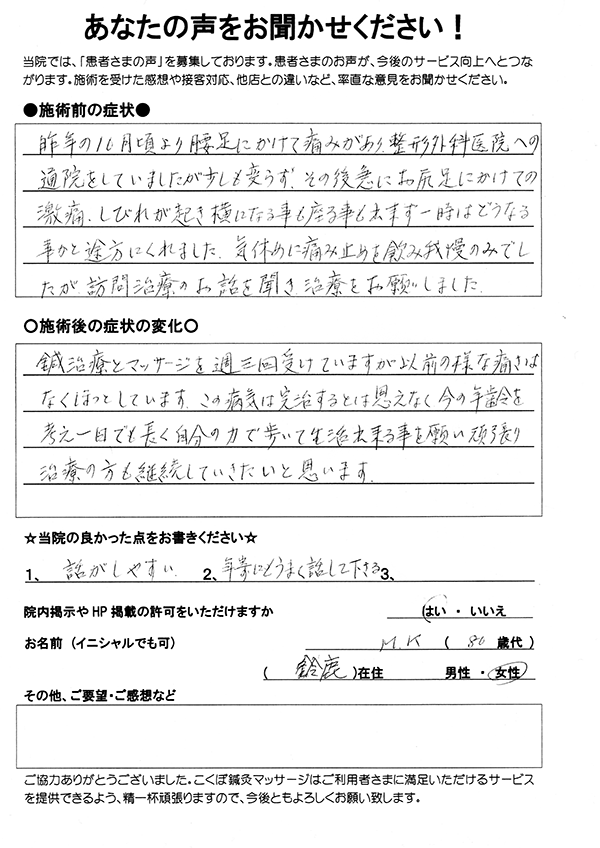 あなたの声をお聞かせください！
当院では、「患者さまの声」を募集しております。患者さまのお声が、今後のサービス向上へとつな
がります。施術を受けた感想や接客対応、他店との違いなど、率直な意見をお聞かせください。
●施術前の症状●
昨年の10月頃より腰足にかけて痛みがあり、整形外科医院への
通院をしていましたが少しも変らず、その後急にお尻足にかけての
激痛、しびれが起き横になる事も座る事も出来ず一時はどうなる
事かと途方にくれました。気休めに痛み止めを飲み我慢のみでし
たが、訪問治療のお話を聞き、治療をお願いしました。
〇施術後の症状の変化〇
鍼治療とマッサージを週三回受けていますが以前の様な痛さは
なくほっとしています。この病気は完治するとは思えなく今の年齢を
考え一日でも長く自分の力で歩いて生活出来る事を願い頑張り
治療の方も継続していきたいと思います。
☆当院の良かった点をお書きください☆
1、 話がしやすい 2、年寄にもうまく話して下さる 3、
院内掲示やHP掲載の許可をいただけますか はい ・ いいえ
お名前（イニシャルでも可） M.K （ 80 歳代）
（ 鈴鹿 ）在住 男性 ・ 女性
その他、ご要望・ご感想など
ご協力ありがとうございました。こくぼ鍼灸マッサージはご利用者さまに満足いただけるサービス
を提供できるよう、精一杯頑張りますので、今後ともよろしくお願い致します。